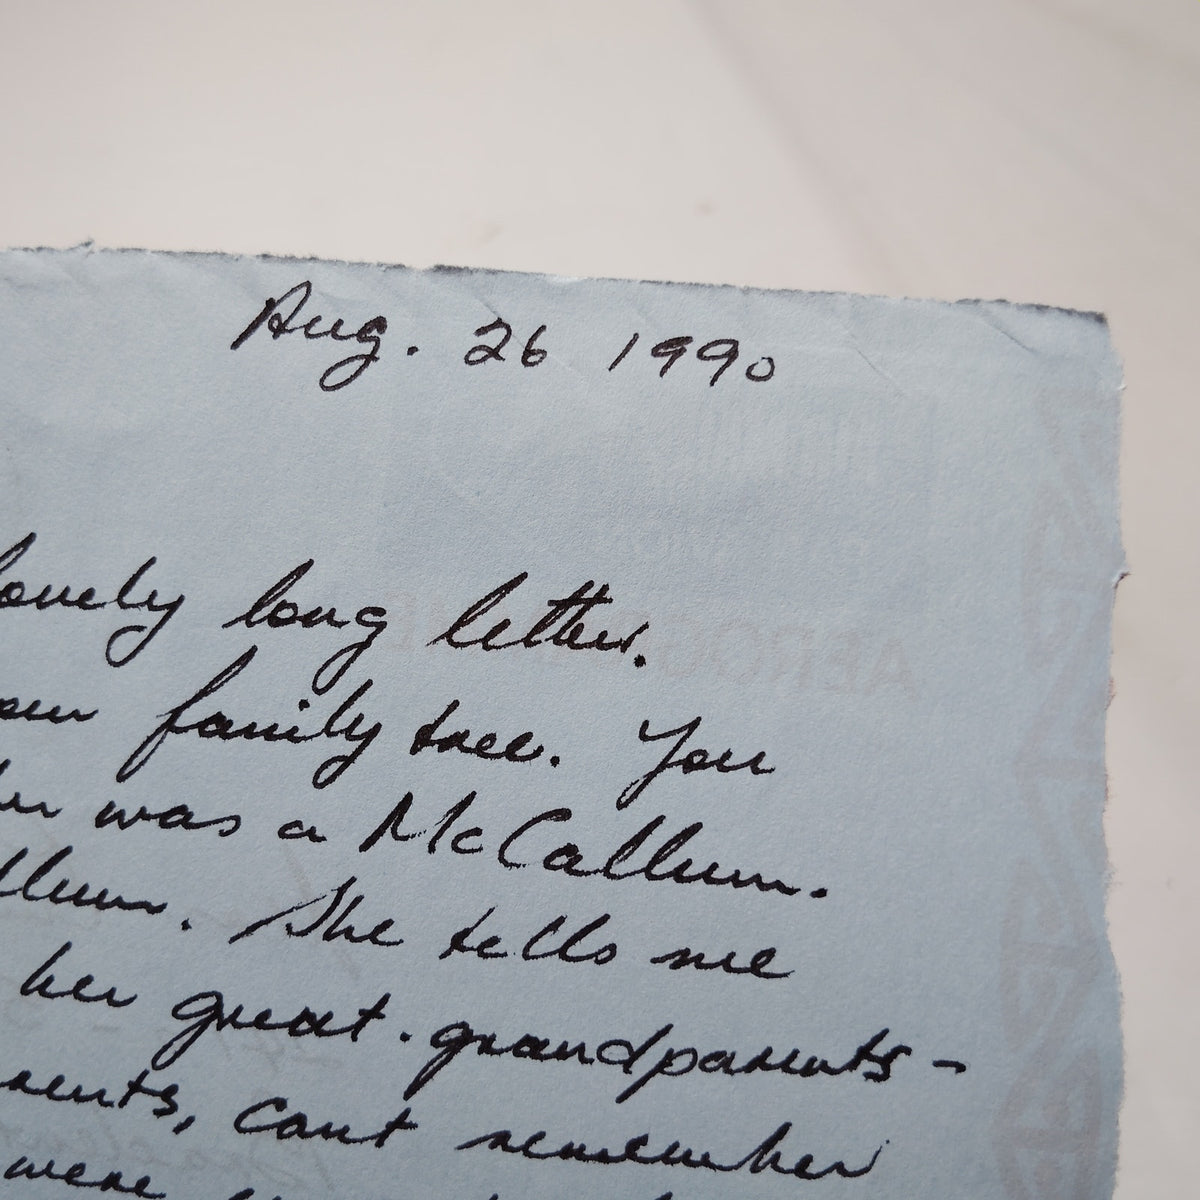 Aug. 26 1990
lovely long letter.
family tree. You
was a McCallum.
She tells me
her great-grandparents -
cant remember
were